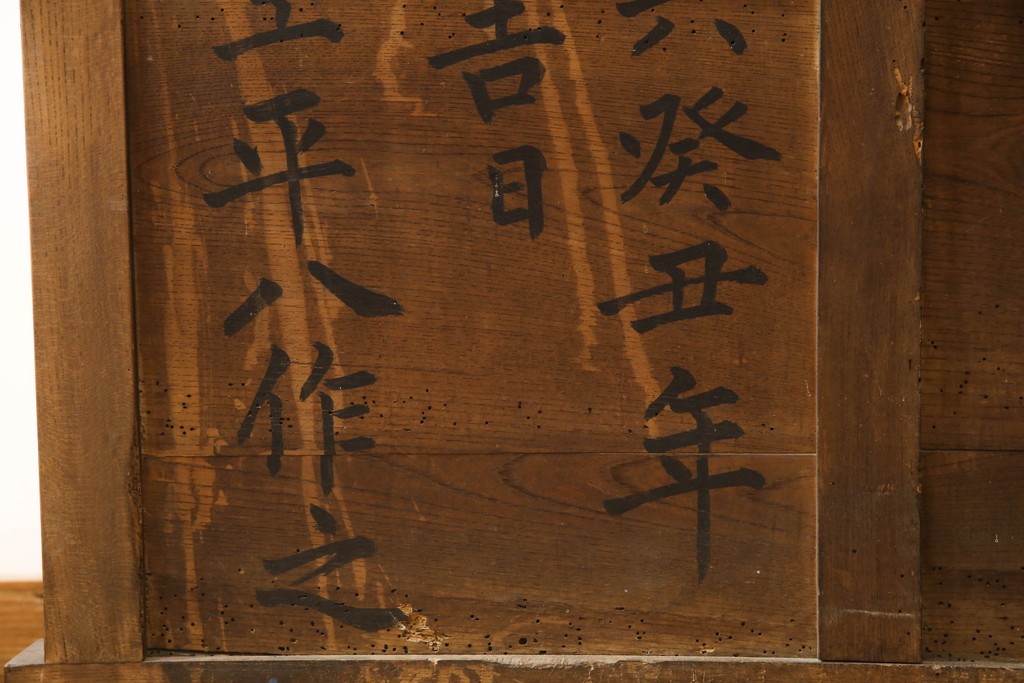 六癸丑年
吉日
平八作之